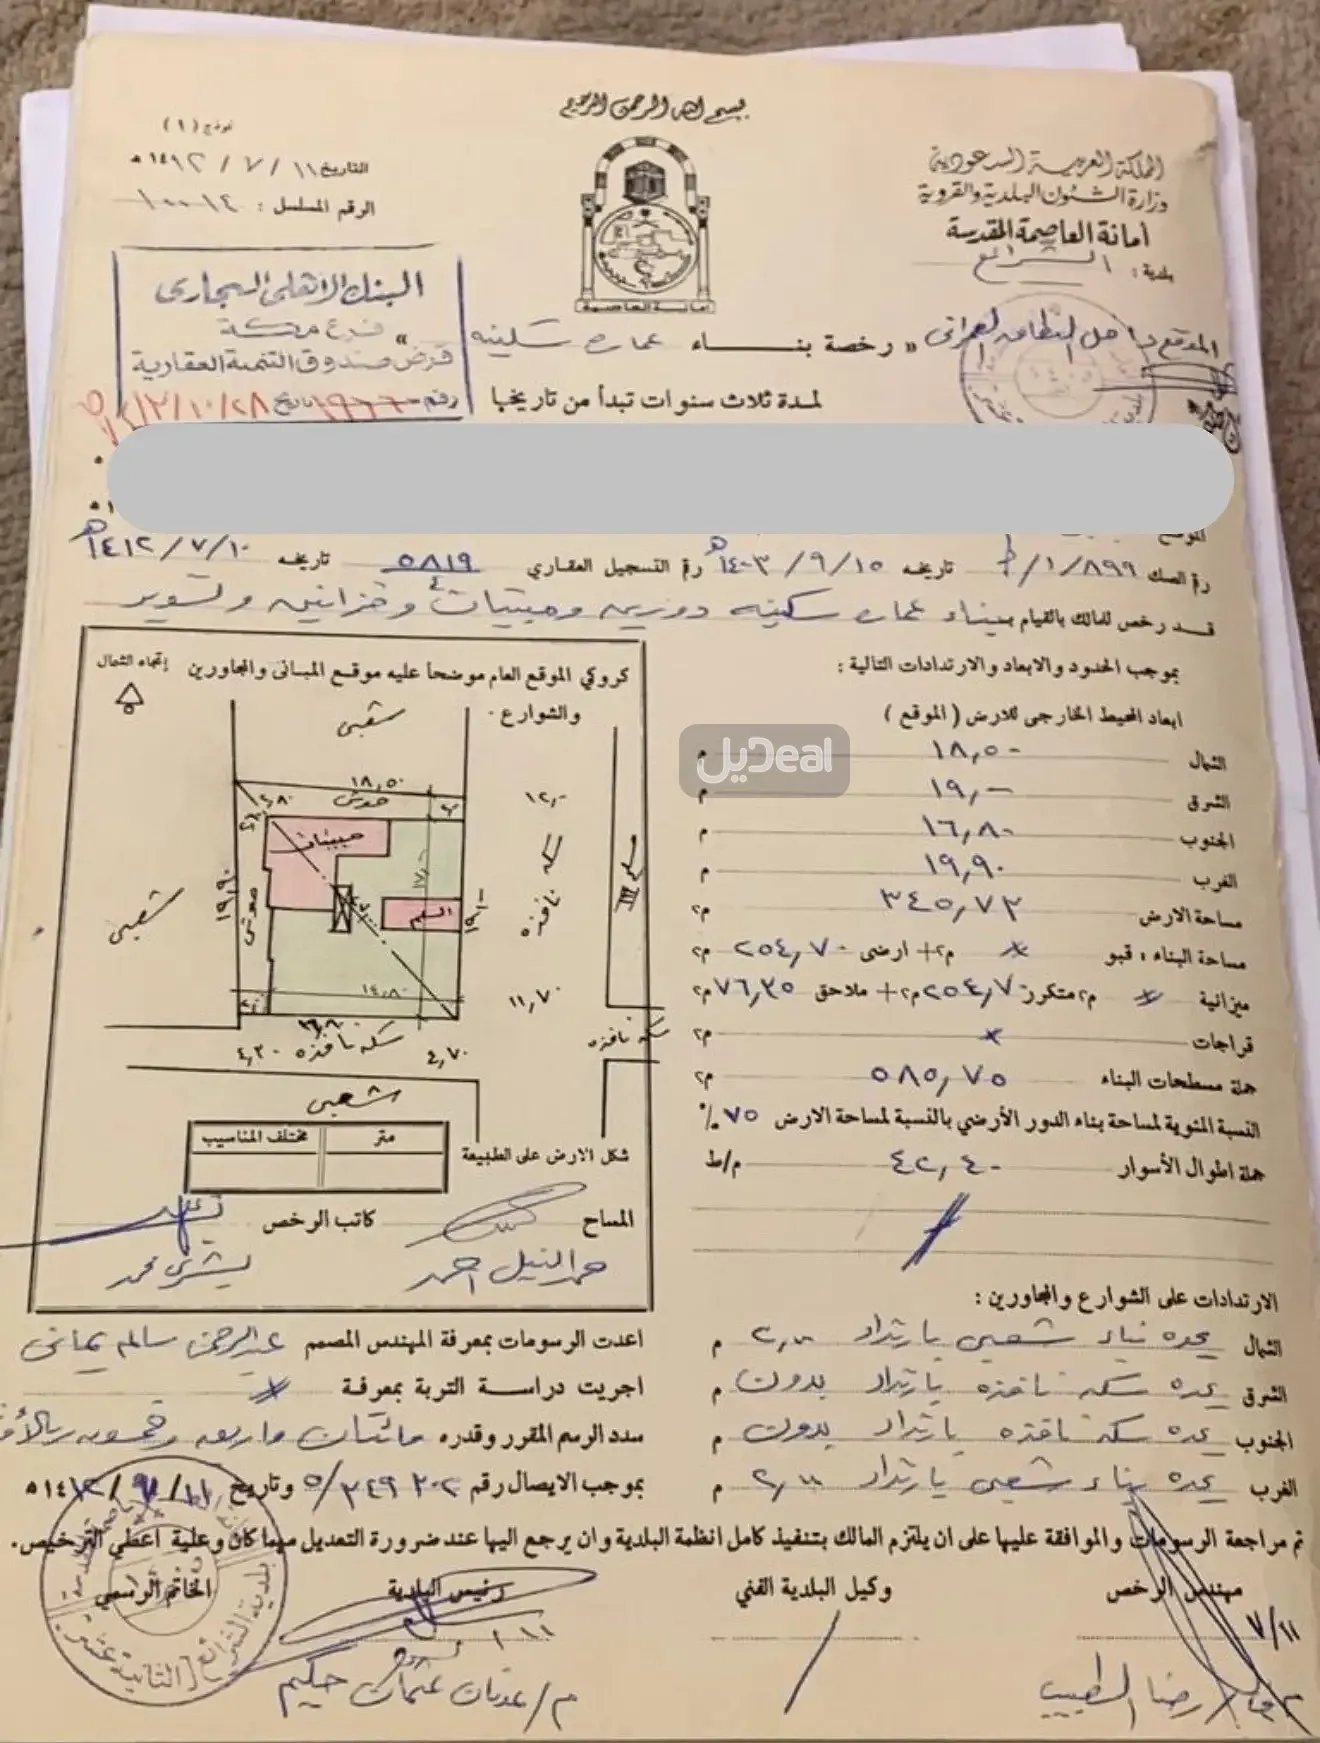 بسم الله الرحمن الرحيم
المملكة العربية السعودية
وزارة الشئون البلدية والقروية
أمانة العاصمة المقدسة
بلدية : الشرائع
أمانة العاصمة
نموذج (١)
التاريخ ١١ / ٧ / ١٤١٢ هـ
الرقم المسلسل : ١٠٠١٤
البنك الأهلي التجاري
فرع مكة
قرض صندوق التنمية العقارية
رقم ١٩٦٦ تاريخ
الموقع داخل النطاق العمراني
« رخصة بنــاء عمارة سكنيه »
لمدة ثلاث سنوات تبدأ من تاريخها
الموقع
رقم الصك ١/٨٩٩/ط تاريخه ١٤٠٣/٩/١٥هـ رقم التسجيل العقاري ٥٨١٩ تاريخه ١٤١٢/٧/١٠هـ
قد رخص للمالك بالقيام ببناء عمارة سكنيه دورين ومبيتات وخزانين وتسوير
بموجب الحدود والابعاد والارتدادات التالية :
ابعاد المحيط الخارجي للارض ( الموقع )
الشمال ١٨,٥٠ م
الشرق ١٩,٠٠ م
الجنوب ١٦,٨٠ م
الغرب ١٩,٩٠ م
مساحة الارض ٣٤٥,٧٣ م٢
مساحة البناء : قبو × م٢+ ارضي ٢٥٤,٧٠ م٢
ميزانية × م٢ متكرر ٢٥٤,٧ م٢+ ملاحق ٧٦,٣٥ م٢
قراجات × م٢
جملة مسطحات البناء ٥٨٥,٧٥ م٢
النسبة المئوية لمساحة بناء الدور الأرضي بالنسبة لمساحة الارض ٧٥ ٪
جملة اطوال الأسوار ٤٢,٤٠ م/ط
الارتدادات على الشوارع والمجاورين :
الشمال يحده بناء شعبي بارتداد ٢,٠٠ م
الشرق يحده سكه نافذه بارتداد بدون م
الجنوب يحده سكه نافذه بارتداد بدون م
الغرب يحده بناء شعبي بارتداد ٢,٠٠ م
كروكي الموقع العام موضحاً عليه موقع المباني والمجاورين
والشوارع
إتجاه الشمال
شعبي
١٨,٥٠
حوش
٢,٨٠
١٢,٠٠
مبيتات
سكه نافذه
١٩,٩٠
حوش
السلم
شعبي
١٤,٨٠
١١,٧٠
١٦,٨٠
سكه نافذه
سكه نافذه
٤,٣٠
٤,٧٠
شعبي
متر
مختلف المناسيب
شكل الارض على الطبيعة
المساح
كاتب الرخص
حمد النيل احمد
يشري محمد
اعدت الرسومات بمعرفة المهندس المصمم عبدالرحمن سالم يماني
اجريت دراسة التربة بمعرفة ×
سدد الرسم المقرر وقدره مائتان واربعه وخمسون ريال
بموجب الايصال رقم ٥/٣٤٩٣٠٢ وتاريخ
تم مراجعة الرسومات والموافقة عليها على ان يلتزم المالك بتنفيذ كامل انظمة البلدية وان يرجع اليها عند ضرورة التعديل مهما كان وعلية اعطي الترخيص.
مهندس الرخص
وكيل البلدية الفني
رئيس البلدية
الخاتم الرسمي
٧/١١
رضا الطبيب
م/ عدنان عثمان حكيم
ديل Deal